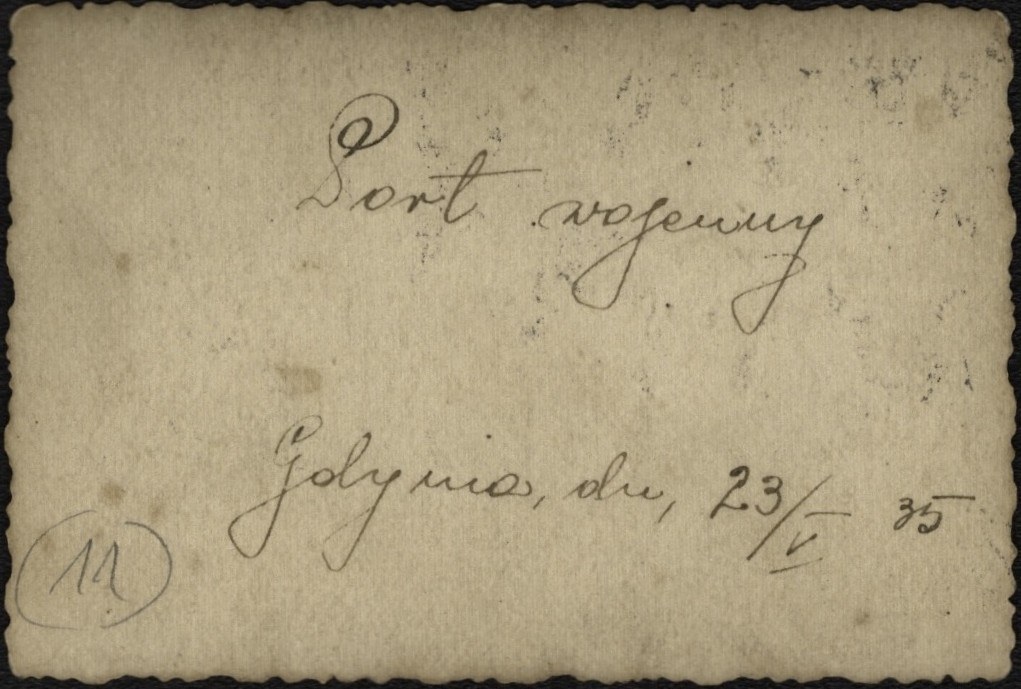 Port wojenny
Gdynia, dn, 23/V 35
11